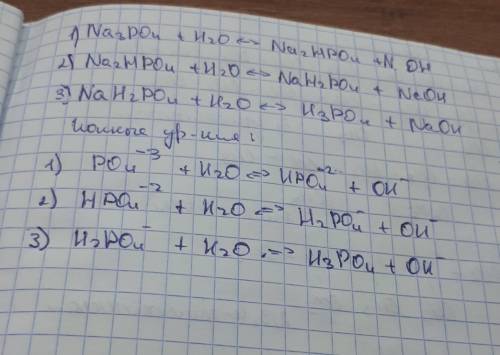 1) Na2PO4 + H2O ⇔ Na2HPO4 + N OH
2) Na2HPO4 + H2O ⇔ NaH2PO4 + NaOH
3) NaH2PO4 + H2O ⇔ H3PO4 + NaOH
Ионные ур-ния:
1) PO4⁻³ + H2O ⇔ HPO4⁻² + OH⁻
2) HPO4⁻² + H2O ⇔ H2PO4⁻ + OH⁻
3) H2PO4⁻ + H2O ⇔ H3PO4 + OH⁻